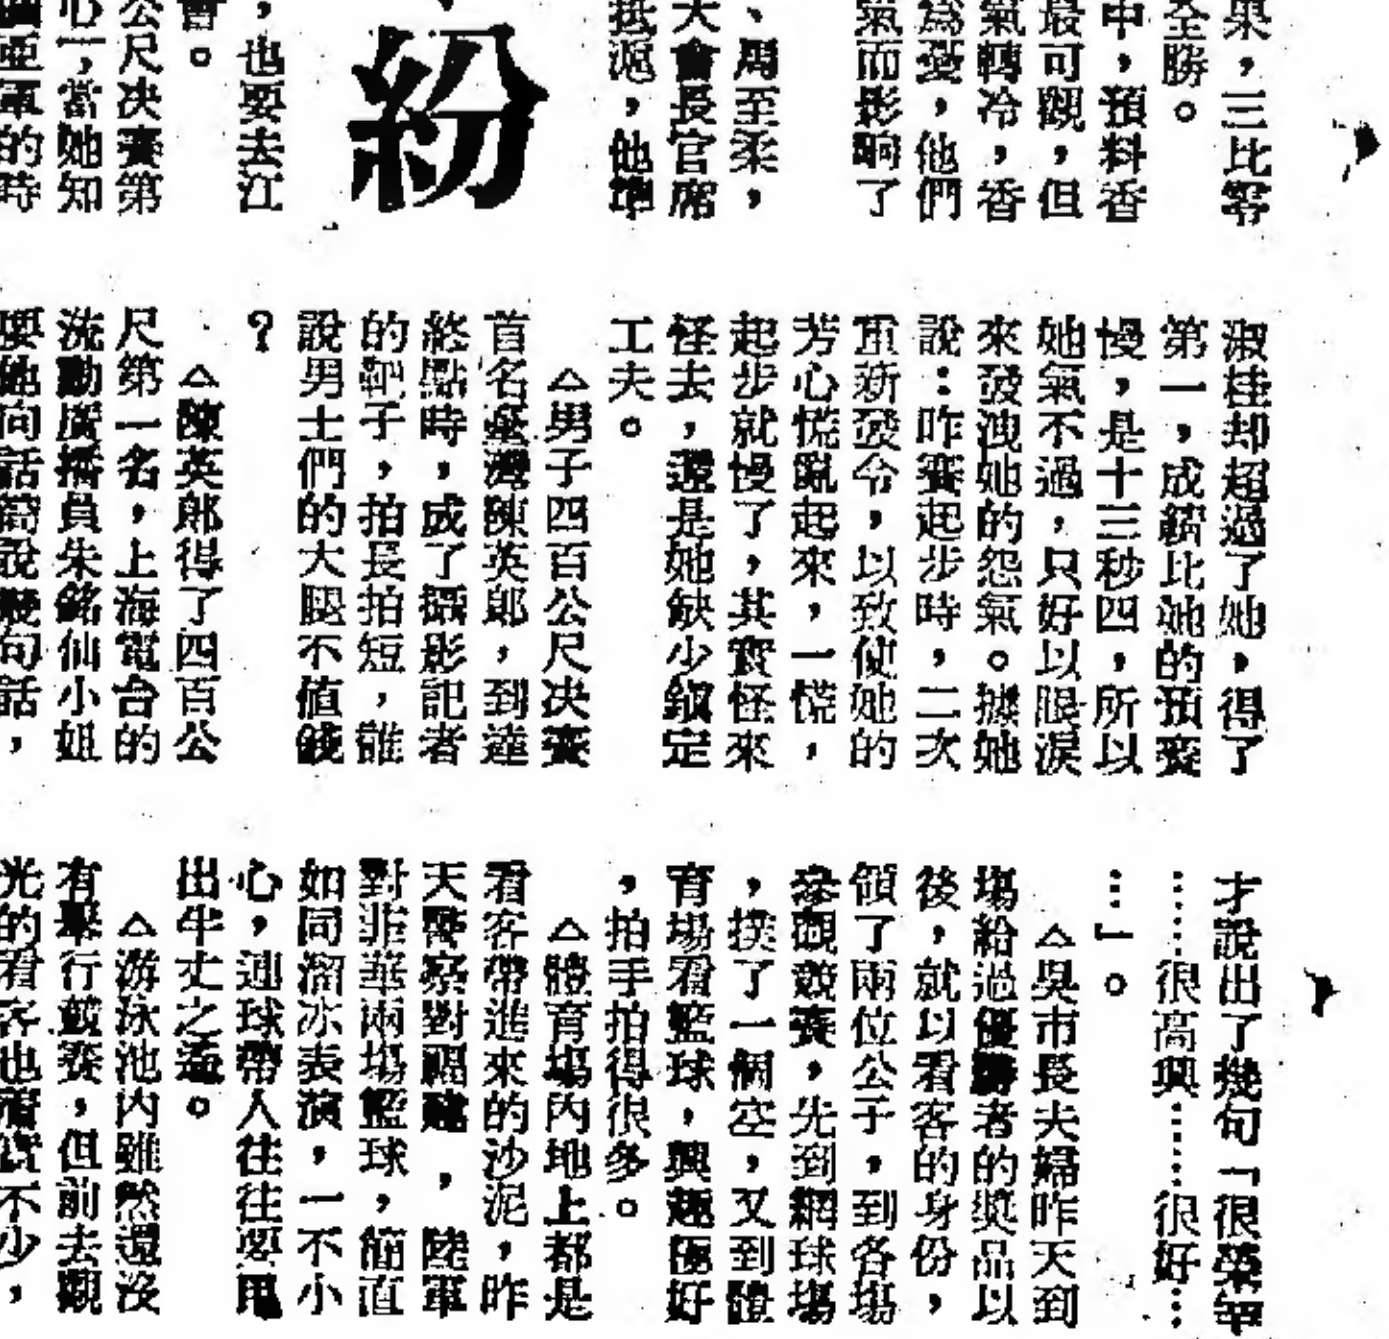 果，三比零
全勝。
中，預料香
最可觀，但
氣轉冷，香
為憂，他們
氣而影响了
、周至柔，
大會長官席
抵滬，他準
紛
，也要去江
會。
公尺决賽第
心一，當她知
個亞軍的時
淑桂却超過了她，得了
第一，成績比她的預賽
慢，是十三秒四，所以
她氣不過，只好以眼淚
來發洩她的怨氣。據她
說：昨賽起步時，二次
重新發令，以致使她的
芳心慌亂起來，一慌，
起步就慢了，其實怪來
怪去，還是她缺少鎮定
工夫。
△男子四百公尺决賽
首名臺灣陳英郎，到達
終點時，成了攝影記者
的靶子，拍長拍短，誰
說男士們的大腿不值錢
？
△陳英郎得了四百公
尺第一名，上海電台的
流動廣播員朱銘仙小姐
要她向話筒說幾句話，
才說出了幾句「很榮幸
……很高興……很好…
…」。
△吳市長夫婦昨天到
塲給過優勝者的獎品以
後，就以看客的身份，
領了兩位公子，到各塲
參觀競賽，先到網球塲
，撲了一個空，又到體
育場看籃球，興趣極好
，拍手拍得很多。
△體育塲內地上都是
看客帶進來的沙泥，昨
天警察對福建，陸軍
對菲華兩場籃球，簡直
如同溜冰表演，一不小
心，連球帶人往往要甩
出半丈之遙。
△游泳池內雖然還沒
有舉行競賽，但前去觀
光的看客也確實不少，